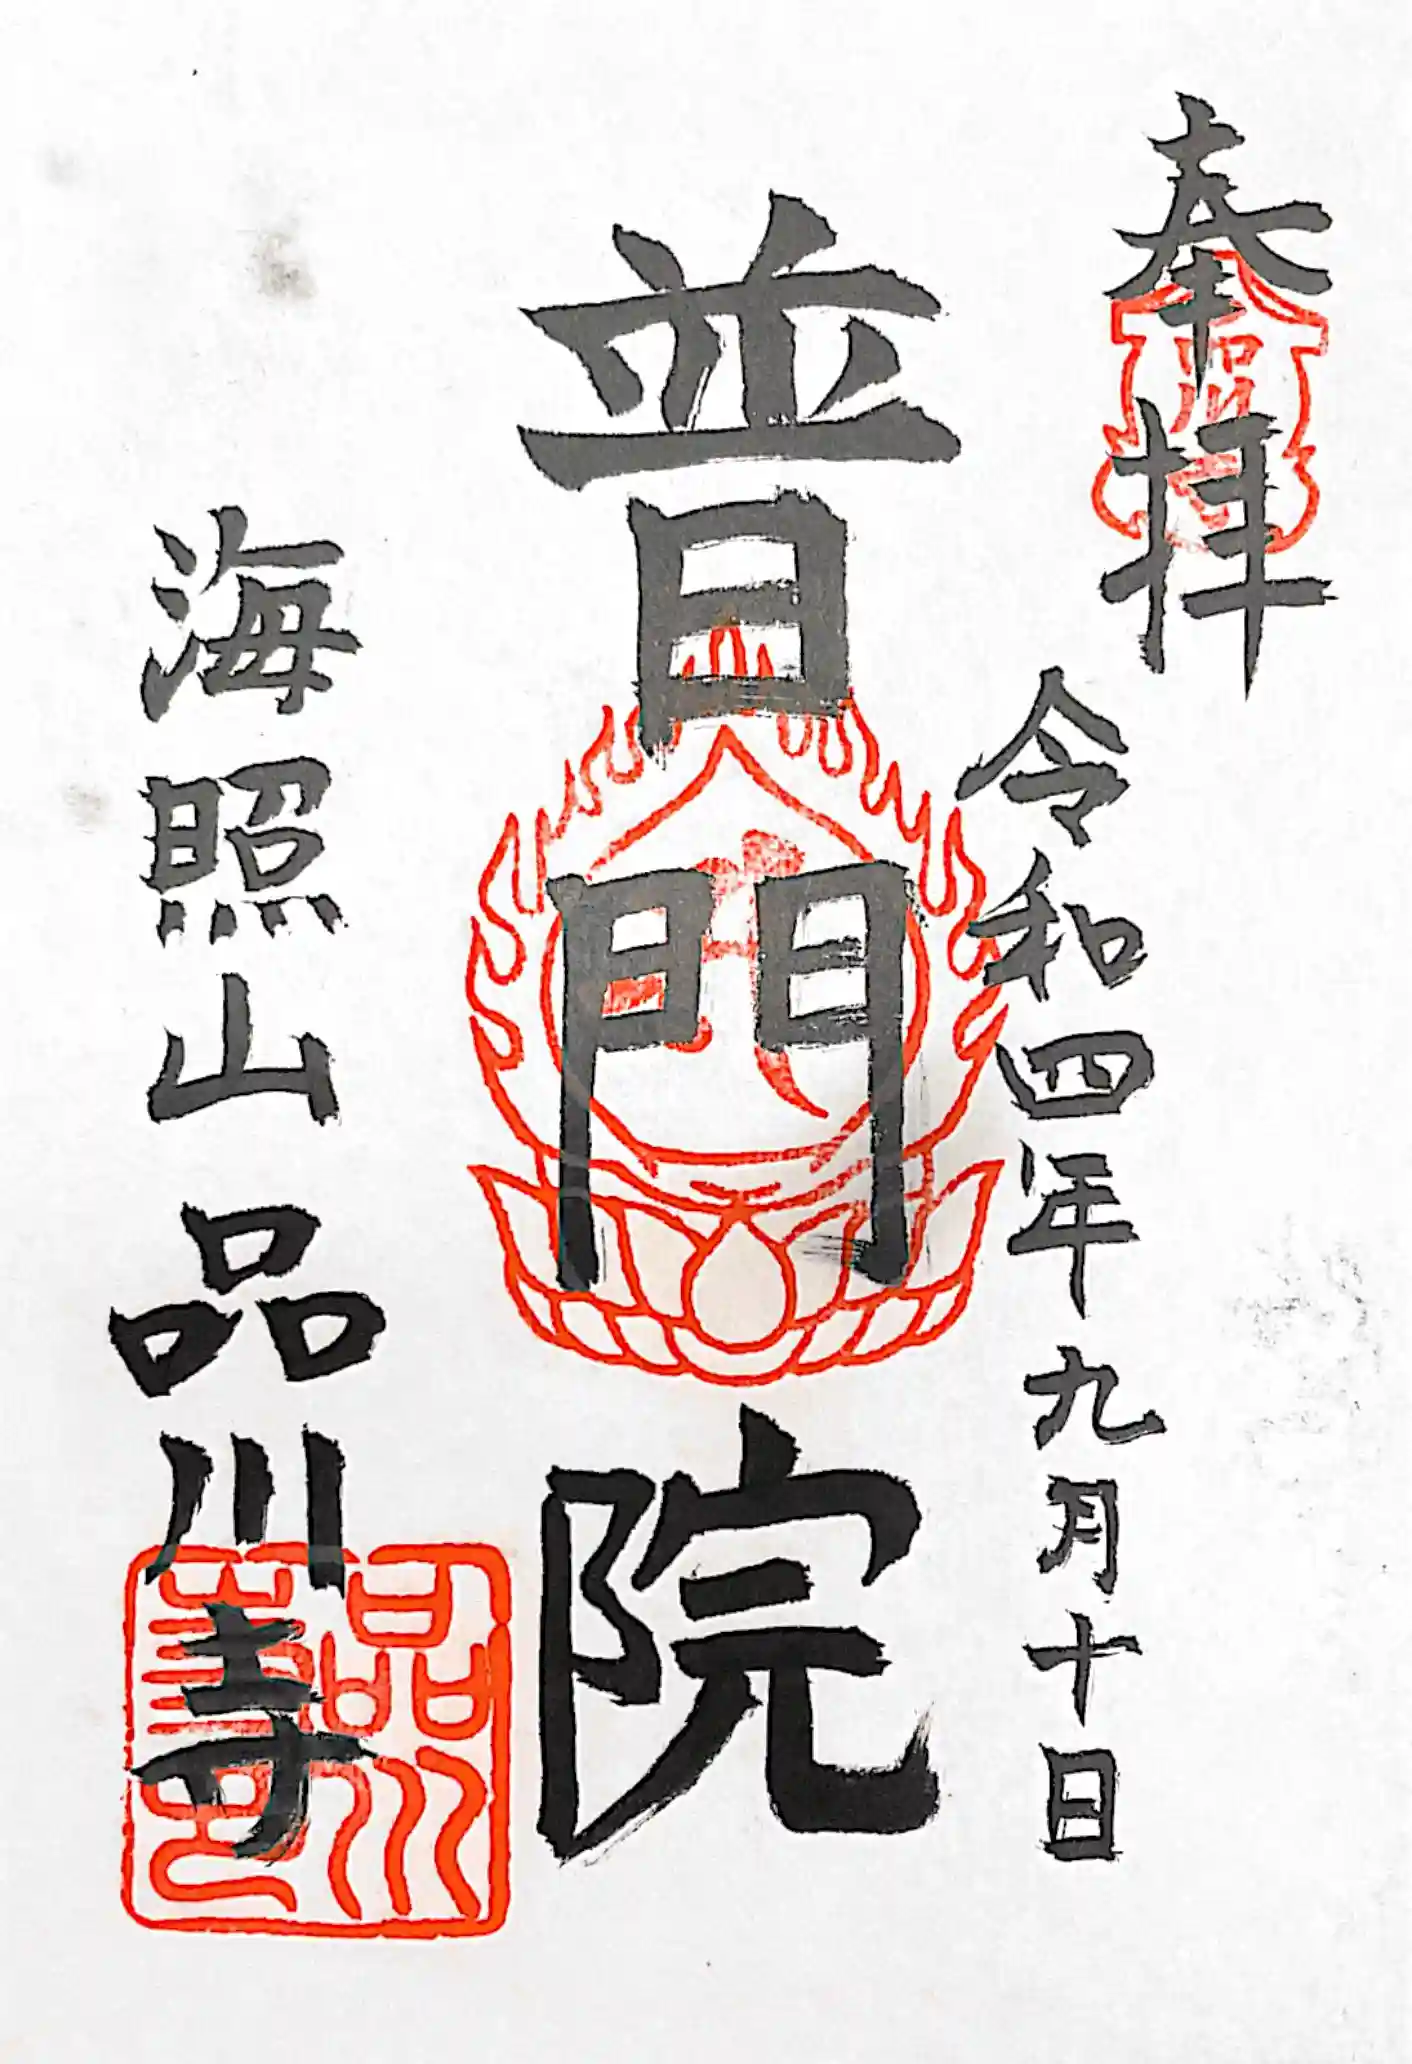 奉拝
令和四年九月十日
普門院
海照山品川寺
品川
品川寺